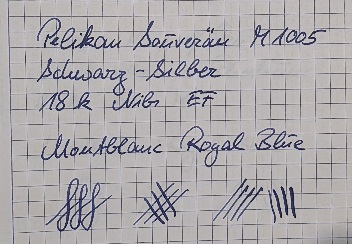 Pelikan Souverän M1005
Schwarz-Silber
18k Nib EF
Montblanc Royal Blue